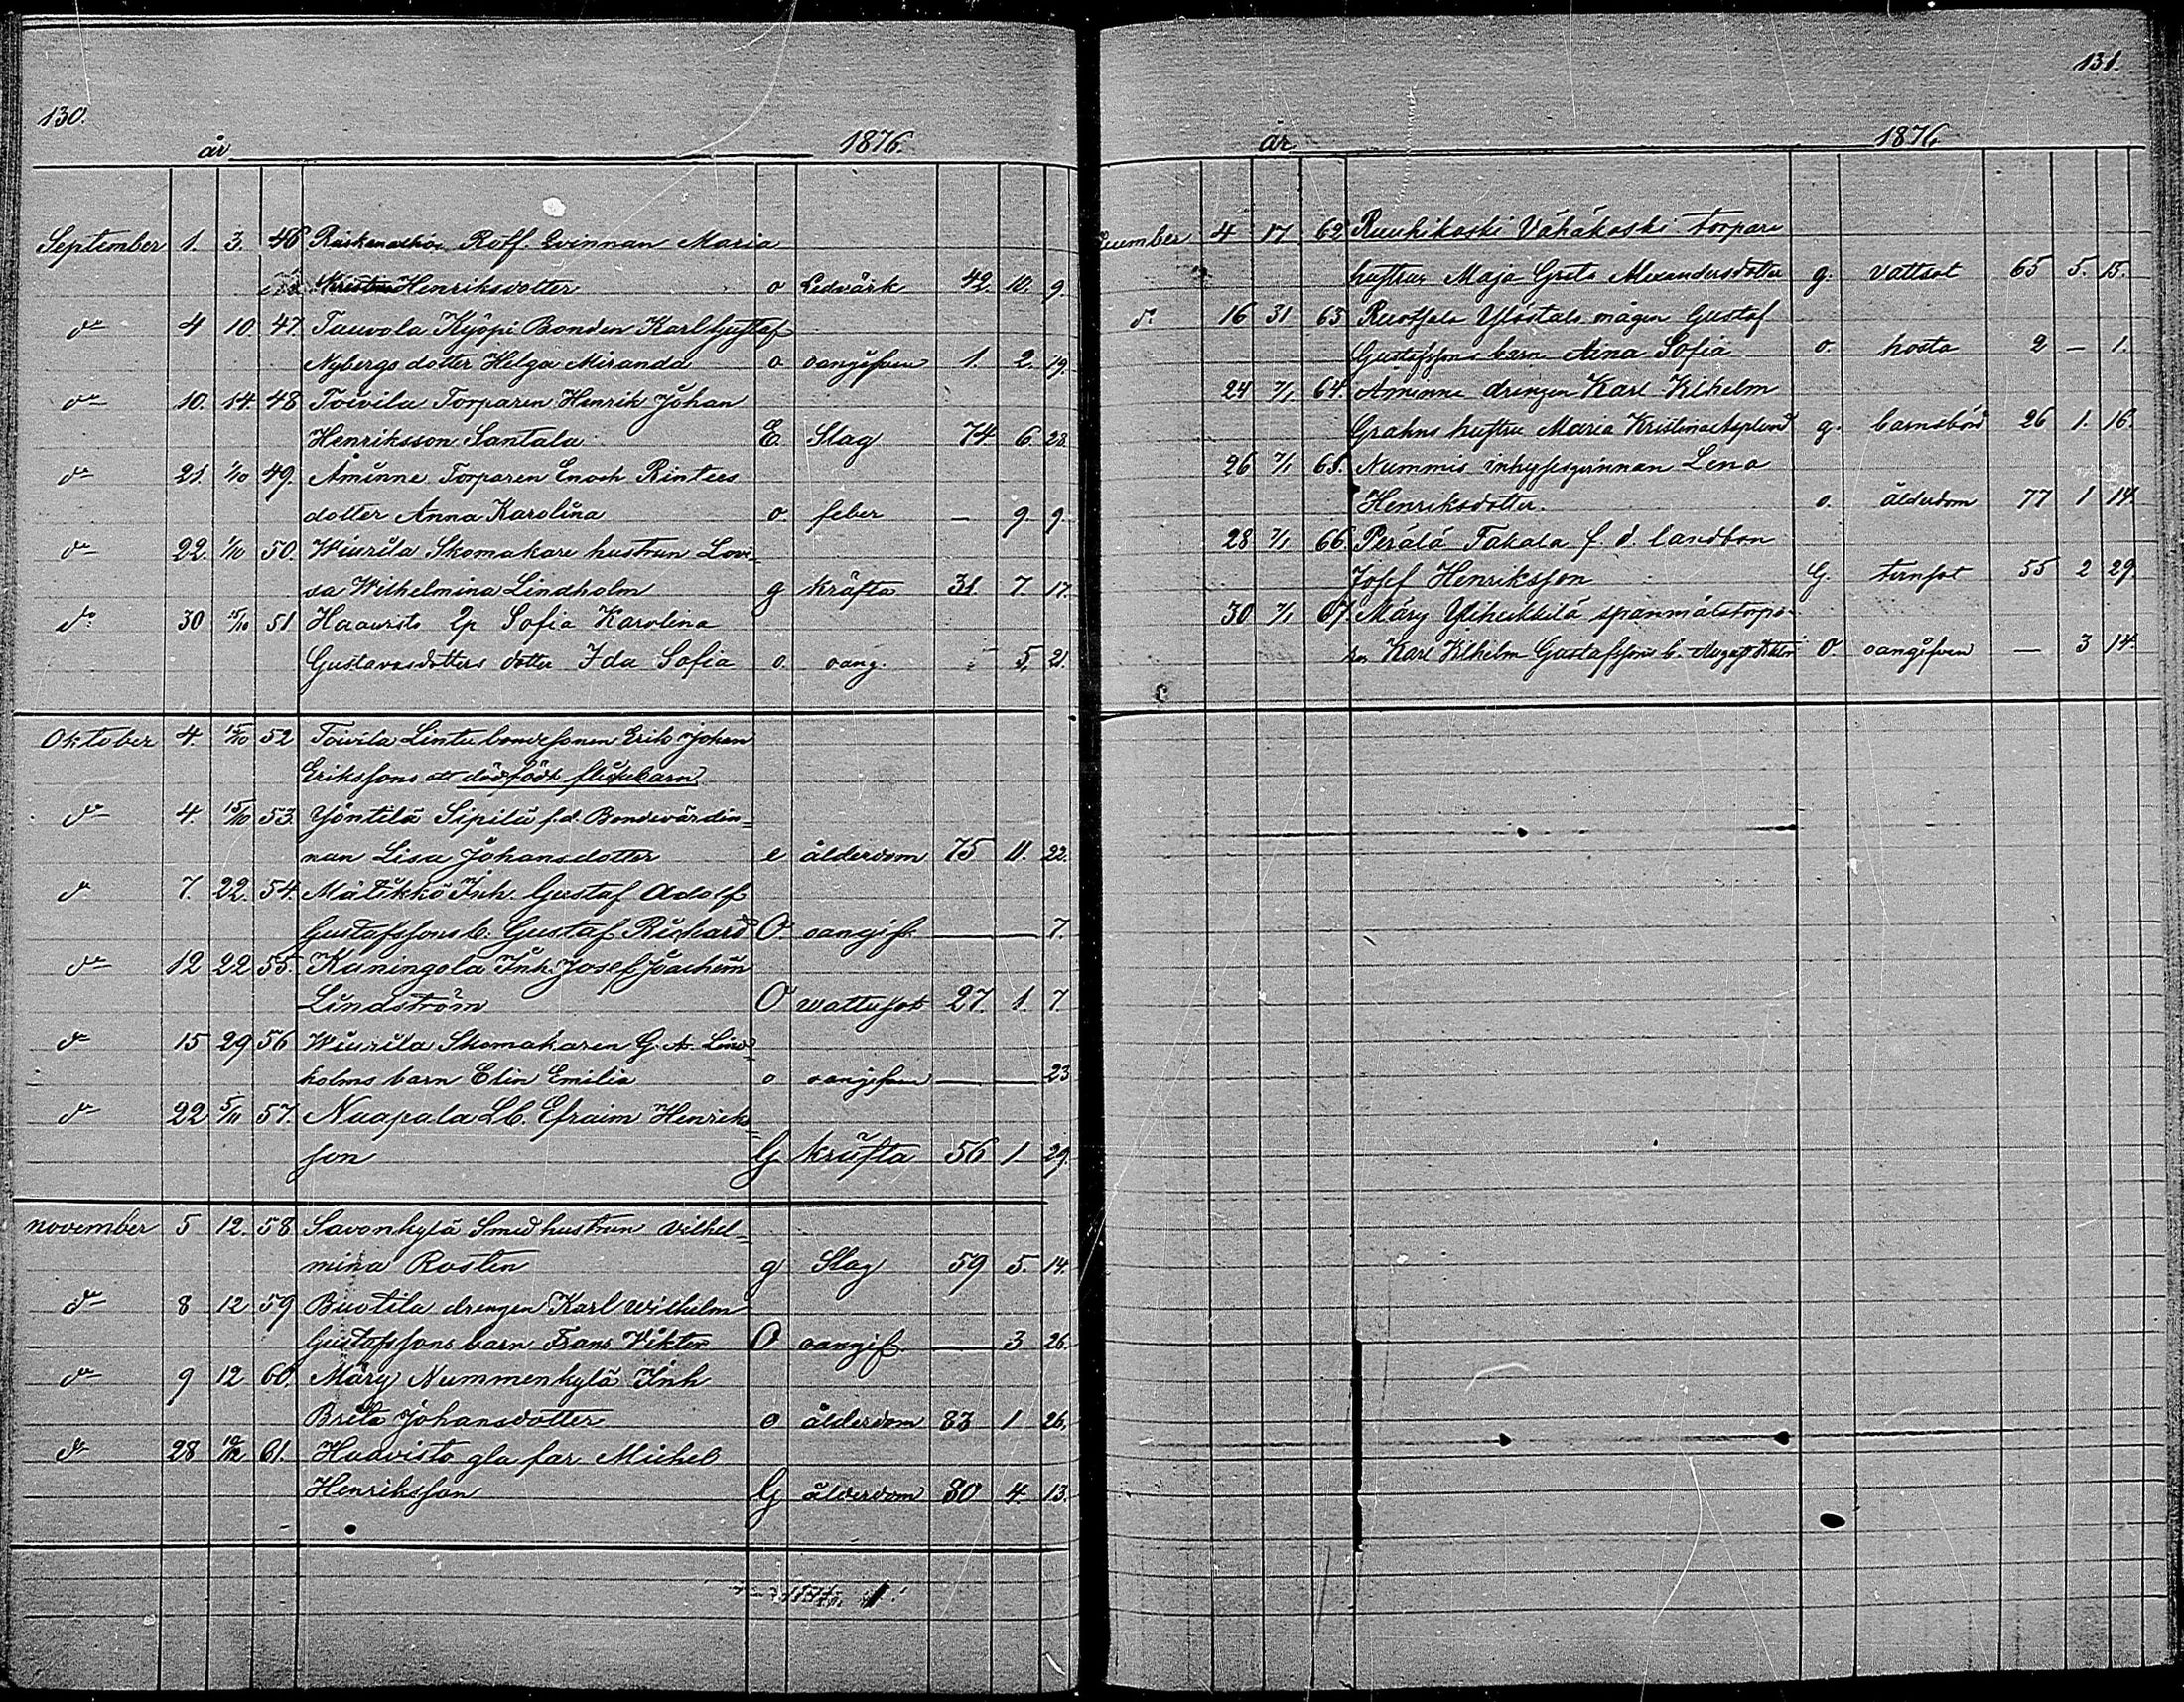 130.
år 1876.
September 1. 3. 46 Rotf. Qvinnan Maria
Henriksdotter o Ledvärk 42. 10. 9.
do 4 10. 47. Tauvola Kyöpi Bonden Karl Gustaf
Nybergs dotter Helga Miranda o oangifven 1. 2. 19.
do 10. 14. 48 Toivila Torparen Henrik Johan
Henriksson Santala E. Slag 74 6 28.
do 21. 1/10 49. Åminne Torparen Enoch Rintees
dotter Anna Karolina o. feber — 9. 9.
do 22. 1/10 50. Wiurila Skomakare hustrun Lovi-
sa Wilhelmina Lindholm g kräfta 31. 7. 17.
do 30 15/10 51 Haavisto Sofia Karolina
Gustavasdotters dotter Ida Sofia o oang. - 5. 21.
Oktober 4. 15/10 52 Toivila Lintu bondesonen Erik Johan
Erikssons dödfödt flickebarn.
do 4. 15/10 53. Yöntilä Sipilä f.d. Bondevärdin=
nan Lisa Johansdotter e ålderdom 75 11. 22.
do 7. 22. 54. Mätikkö Inh. Gustaf Adolf
Gustafssons b. Gustaf Richard O. oangif. — — 7.
do 12 22 55. Kaningola Inh. Josef Joachim
Lindström O wattusot 27. 1. 7.
do 15 29 56 Wiurila Skomakaren G. A. Lind=
holms barn Elin Emilia o oangifven — — 23
do 22 5/11 57. Naapala Lb. Efraim Henriks=
son G kräfta 56 1 29.
november 5 12. 58 Savonkylä Smedhustrun Vilhel=
mina Rosten g Slag 59 5. 14.
do 8 12 59 Buotila drengen Karl Wilhelm
Gustafssons barn Frans Viktor O oangif. — 3 26.
do 9 12 60. Märy Nummenkylä Inh
Brita Johansdotter e ålderdom 83 1 26.
do 28 10/12 61. Haavisto gla far Michel
Henriksson G ålderdom 80 4. 13.
131.
år 1876.
December 4 17 62 Ruuhikoski Vähäkoski torpare
hustrun Maja Greta Alexandersdotter g. vattsot 65 5. 15.
do 16 31 63 Ylöstalo mågen Gustaf
Gustafssons barn Aina Sofia o. hosta 2 — 1.
24 7/1 64. Åminne drengen Karl Vilhelm
Grahns hustru Maria Kristina Asplund g. barnsbörd 26 1. 16.
26 7/1 65. Nummis inhysesqvinnan Lena
Henriksdotter. o. ålderdom 77 1 14.
28 7/1 66. Perälä Takala f. d. landbon
Josef Henriksson G. tvinsot 55 2 29.
30 7/1 67. Märy Yliheikkilä spanmålstorpa-
ren Karl Vilhelm Gustafssons b. August Viktor O. oangifven — 3 14.